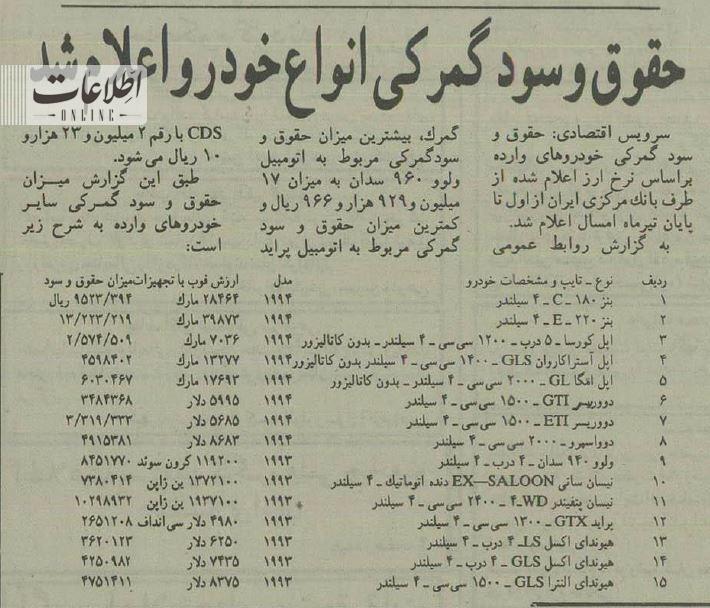 حقوق و سود گمرکی انواع خودرو اعلام شد
اطلاعات
ONLINE
سرویس اقتصادی: حقوق و
سود گمرکی خودروهای وارده
براساس نرخ ارز اعلام شده از
طرف بانك مرکزی ایران از اول تا
پایان تیرماه امسال اعلام شد.
به گزارش روابط عمومی
گمرك، بیشترین میزان حقوق و
سودگمرکی مربوط به اتومبیل
ولوو ۹۶۰ سدان به میزان ۱۷
میلیون و ۹۲۹ هزار و ۹۶۶ ریال و
کمترین میزان حقوق و سود
گمرکی مربوط به اتومبیل پراید
CDS با رقم ۲ میلیون و ۲۳ هزار و
۱۰ ریال می‌شود.
طبق این گزارش میزان
حقوق و سود گمرکی سایر
خودروهای وارده به شرح زیر
است:
ردیف نوع ـ تایپ و مشخصات خودرو مدل ارزش فوب با تجهیزات میزان حقوق و سود
۱ بنز ۱۸۰ ـ C ـ ۴ سیلندر ۱۹۹۴ ۲۸۴۶۴ مارك ۹۵۲۳/۳۹۴ ریال
۲ بنز ۲۲۰ ـ E ـ ۴ سیلندر ۱۹۹۴ ۳۹۸۷۳ مارك ۱۳/۲۲۳/۲۱۹
۳ اپل کورسا ـ ۵ درب ـ ۱۲۰۰ سی‌سی ـ ۴ سیلندر ـ بدون کاتالیزور ۱۹۹۴ ۷۰۳۶ مارك ۲/۵۷۴/۵۰۹
۴ اپل آستراکاروان GLS ـ ۱۴۰۰ سی‌سی ـ ۴ سیلندر بدون کاتالیزور ۱۹۹۴ ۱۳۲۷۷ مارك ۴۵۹۸۴۰۲
۵ اپل امگا GL ـ ۲۰۰۰ سی‌سی ـ ۴ سیلندر ـ بدون کاتالیزور ۱۹۹۴ ۱۷۶۹۳ مارك ۶۰۳۰۴۶۷
۶ دووریسر GTI ـ ۱۵۰۰ سی‌سی ـ ۴ سیلندر ۱۹۹۴ ۵۹۹۵ دلار ۳۴۸۴۳۶۸
۷ دووریسر ETI ـ ۱۵۰۰ سی‌سی ـ ۴ سیلندر ۱۹۹۴ ۵۶۸۵ دلار ۳/۳۱۹/۳۳۳
۸ دوواسپرو ـ ۲۰۰۰ سی‌سی ـ ۴ سیلندر ۱۹۹۴ ۸۶۸۳ دلار ۴۹۱۵۳۸۱
۹ ولوو ۹۴۰ سدان ـ ۴ درب ـ ۴ سیلندر ۱۹۹۳ ۱۱۹۲۰۰ کرون سوئد ۸۴۵۱۷۷۰
۱۰ نیسان سانی EX—SALOON دنده اتوماتیك ـ ۴ سیلندر ۱۹۹۳ ۱۳۷۲۱۰۰ ین ژاپن ۷۳۸۰۴۱۴
۱۱ نیسان پتفیندر ۴ـWD ـ ۲۴۰۰ سی‌سی ـ ۴ سیلندر ۱۹۹۳ ۱۹۳۷۱۰۰ ین ژاپن ۱۰۲۹۸۹۳۲
۱۲ پراید GTX ـ ۱۳۰۰ سی‌سی ـ ۴ سیلندر ۱۹۹۳ ۴۹۸۰ دلار سی‌اند‌اف ۲۶۵۱۲۰۸
۱۳ هیوندای اکسل LS ـ ۴ درب ـ ۴ سیلندر ۱۹۹۳ ۶۲۵۰ دلار ۳۶۲۰۱۲۳
۱۴ هیوندای اکسل GLS ـ ۴ درب ـ ۴ سیلندر ۱۹۹۳ ۷۴۳۵ دلار ۴۲۵۰۹۸۲
۱۵ هیوندای النترا GLS ـ ۱۵۰۰ سی‌سی ـ ۴ سیلندر ۱۹۹۳ ۸۳۷۵ دلار ۴۷۵۱۴۱۱